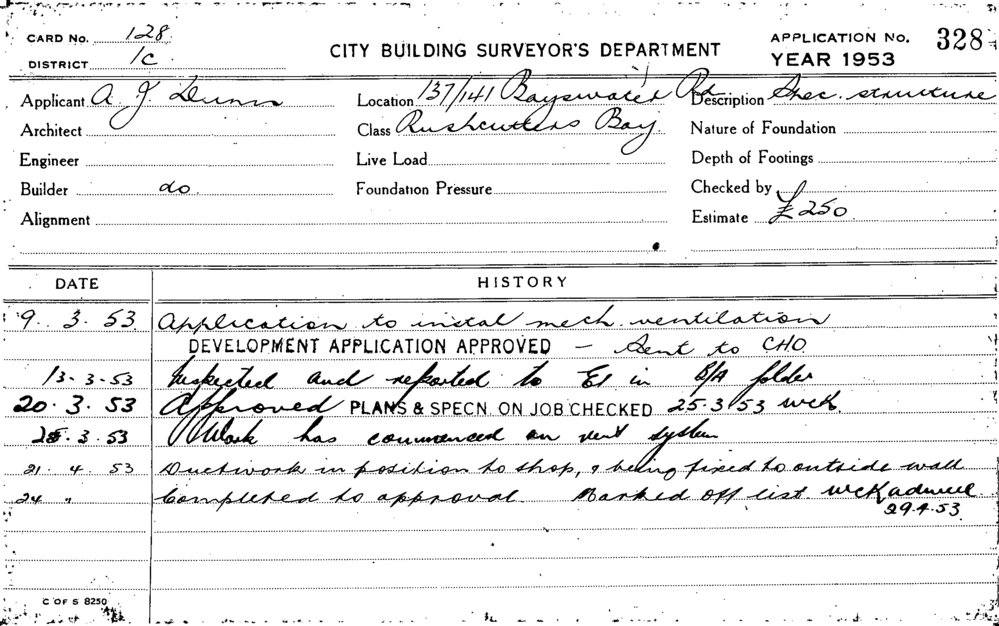 CARD No. 128
DISTRICT 1c
CITY BUILDING SURVEYOR'S DEPARTMENT
APPLICATION No. 328
YEAR 1953
Applicant A J Dunn
Location 137/141 Bayswater Rd
Description Spec. structure
Architect
Class Rushcutters Bay.
Nature of Foundation
Engineer
Live Load
Depth of Footings
Builder do.
Foundation Pressure
Checked by
Alignment
Estimate £250
DATE HISTORY
9. 3. 53 Application to instal mech. ventilation
DEVELOPMENT APPLICATION APPROVED – Sent to CHO.
13-3-53 Inspected and reported to in B/A folder
20.3.53 Approved PLANS & SPECN. ON JOB CHECKED 25.3.53 WCK.
25.3.53 Work has commenced on vent system
21. 4. 53 Ductwork in position to shop, & being fixed to outside wall
24 " Completed to approval. Marked off list
29.4.53.
C OF S 8250